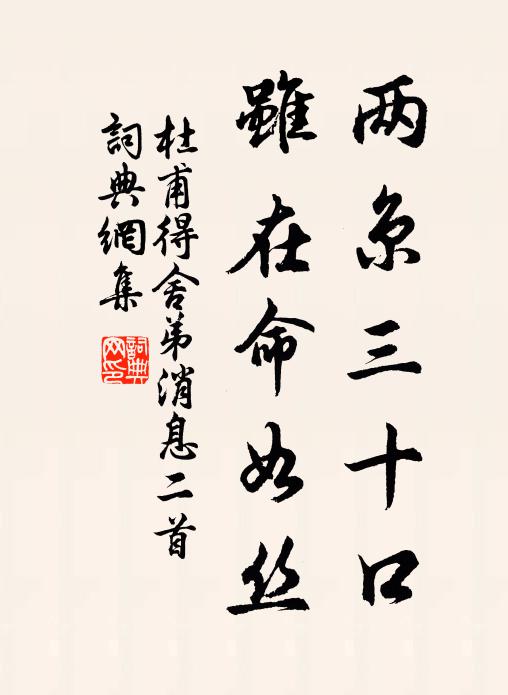 两京三十口
雖在命如丝
杜甫得舍弟消息二首
詞典網集
詞典
网印